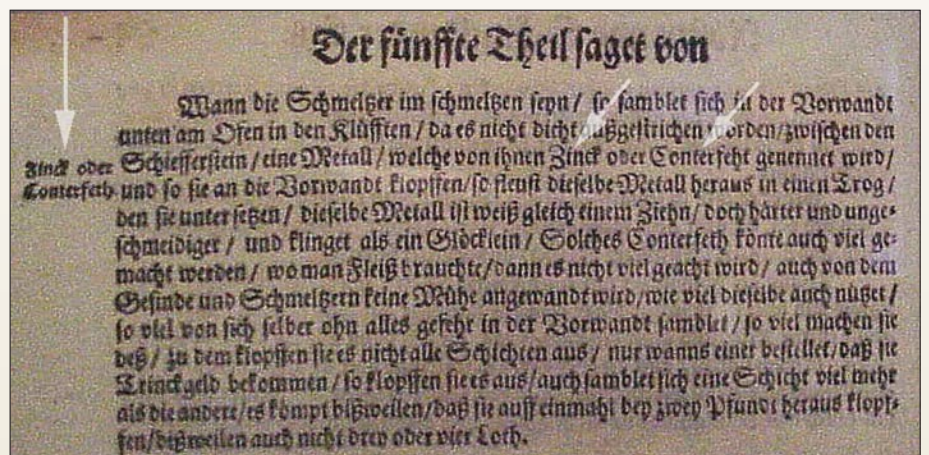 Der fünffte Theil saget von
Wann die Schmeltzer im schmeltzen seyn / so samblet sich in der Vorwandt
unten am Ofen in den Klüfften / da es nicht dicht außgestrichen worden / zwischen den
Zinck oder
Conterfeth.
Schiefferstein / eine Metall / welche von ihnen Zinck oder Conterfeht genennet wird /
und so sie an die Vorwandt klopffen / so fleust dieselbe Metall heraus in einen Trog /
den sie unter setzen / dieselbe Metall ist weiß gleich einem Ziehn / doch härter und unge-
schmeidiger / und klinget als ein Glöcklein / Solches Conterfeth könte auch viel ge-
macht werden / wo man Fleiß brauchte / dann es nicht viel geacht wird / auch von dem
Gesinde und Schmeltzern keine Mühe angewandt wird / wie viel dieselbe auch nützet /
so viel von sich selber ohn alles gefehr in der Vorwandt samblet / so viel machen sie
deß / zu dem klopffen sie es nicht alle Schichten aus / nur wanns einer bestellet / daß sie
Trinckgeld bekommen / so klopffen sie es aus / auch samblet sich eine Schicht viel mehr
als die andere / es kompt bißweilen / daß sie auff einmahl bey zwey Pfundt heraus klopf-
fen / bißweilen auch nicht drey oder vier Loth.